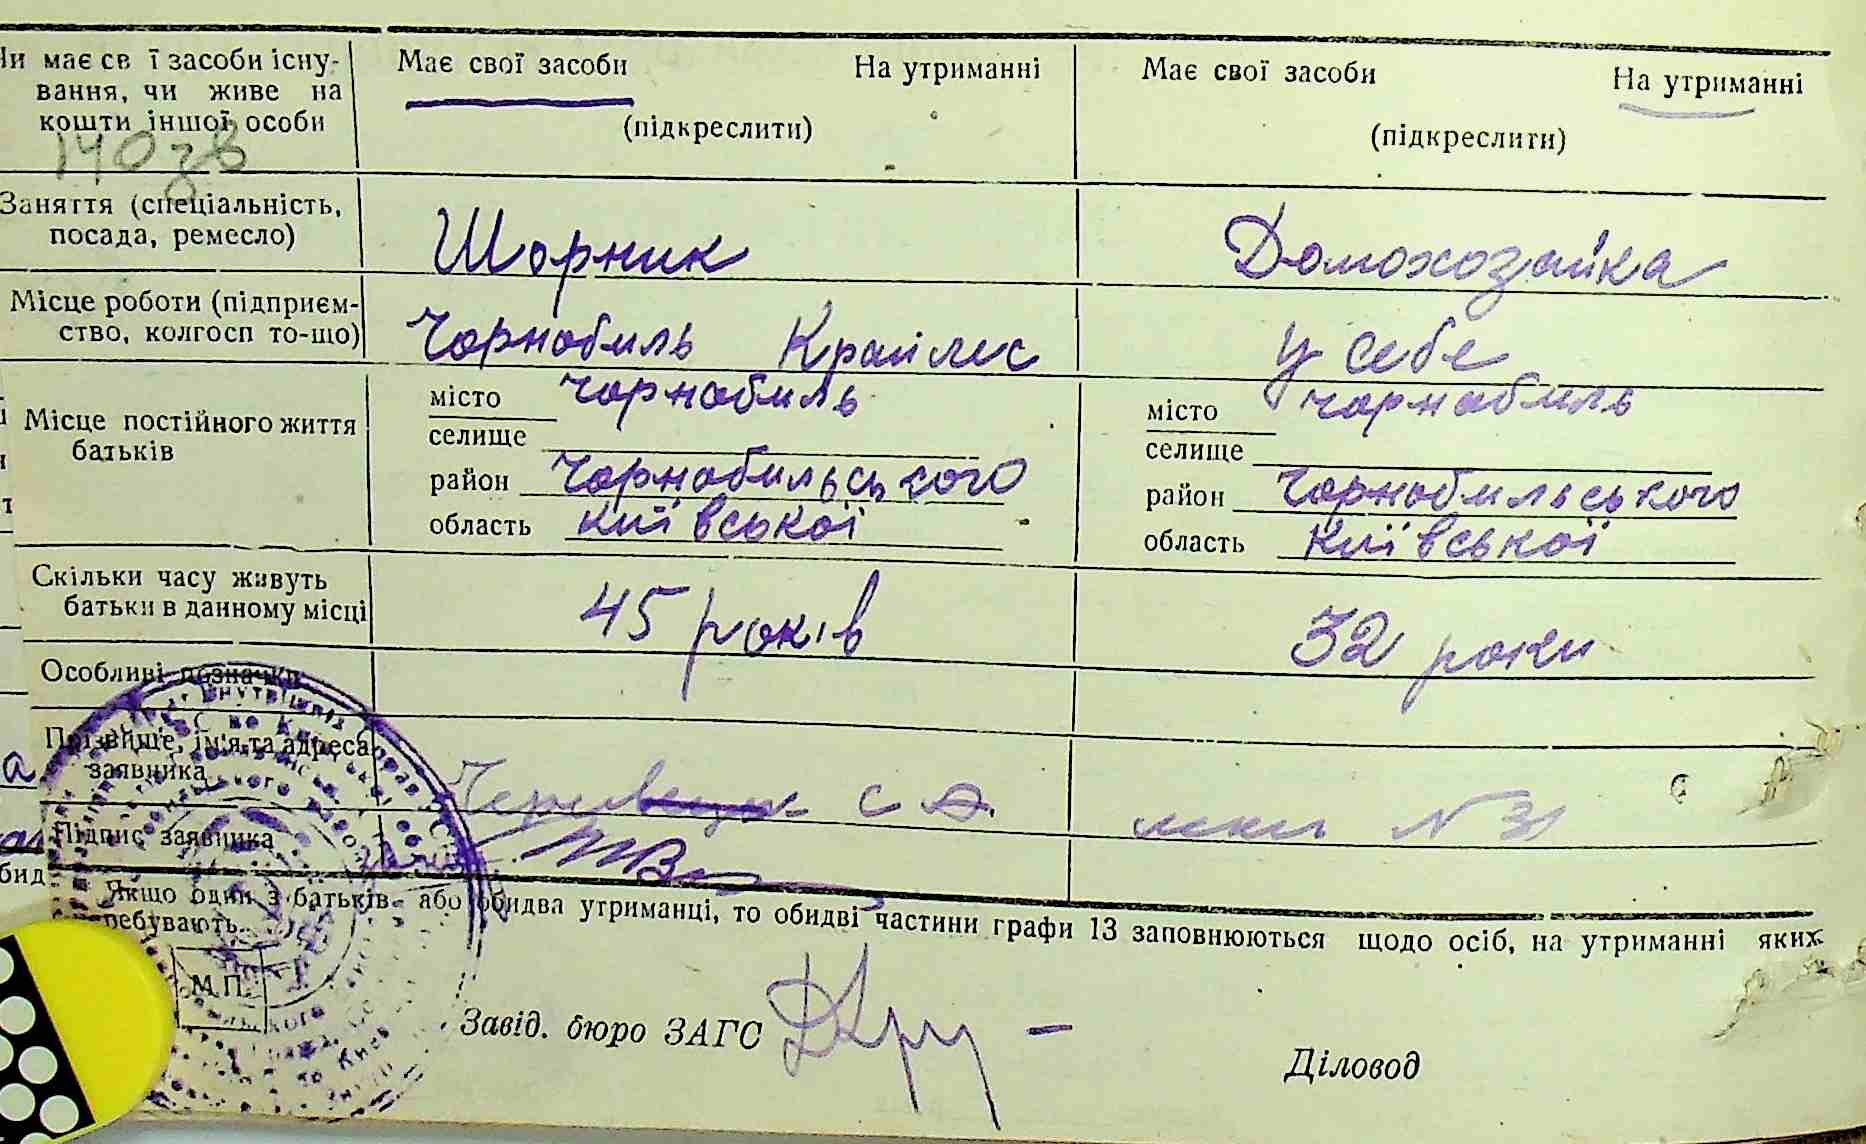 Чи має св ї засоби існу-
вання, чи живе на
кошти іншої особи
140 зв
Має свої засоби На утриманні
(підкреслити)
Має свої засоби На утриманні
(підкреслити)
Заняття (спеціальність,
посада, ремесло)
Шорник
Домохозайка
Місце роботи (підприєм-
ство, колгосп то-що)
Чорнобиль Крайлес
у себе
Місце постійного життя
батьків
місто Чорнобиль
селище
район Чорнобильського
область Київської
місто Чорнобиль
селище
район Чорнобильського
область Київської
Скільки часу живуть
батьки в данному місці
45 років
32 роки
Особливі позначки
Прізвище, ім'я та адреса
заявника
с
N 31
Підпис заявника
Якщо один з батьків або обидва утриманці, то обидві частини графи 13 заповнюються щодо осіб, на утриманні яких
перебувають.
М.П.
Завід. бюро ЗАГС
Діловод